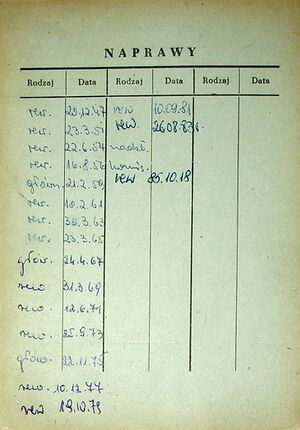 NAPRAWY
Rodzaj Data Rodzaj Data Rodzaj Data
rew. 20.12.47 rew 10.09.81
rew. 23.3.51 rew. 26.08.83r.
rew. 22.6.54 nadzw.
rew. 16.8.56 komis.
główn. 21.2.59 rew 85.10.18
rew. 10.2.61
rew. 30.3.63
rew. 25.3.65
głów. 24.4.67
rew 31.3.69
rew. 12.6.71
rew. 25.9.73
głów. 22.11.75
rew. 10.12.77
rew 19.10.79